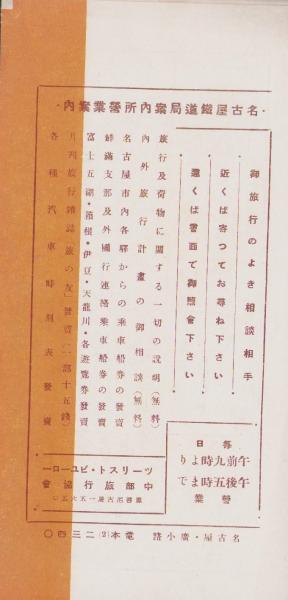 ・名古屋鐵道局案內所營業案內・
御旅行のよき相談相手
近くば寄つてお尋ね下さい
遠くば書面で御照會下さい
旅行及荷物に關する一切の說明（無料）
內外旅行計畫の御相談（無料）
名古屋市內各驛からの乘車船券の發賣
鮮滿支那及外國行連絡乘車船券の發賣
富士五湖・箱根・伊豆・天龍川・各遊覽券發賣
月刊旅行雜誌「旅の友」發賣（一部十五錢）
各種汽車時刻表發賣
每日
午前九時より
午後五時まで
營業
ツーリスト・ビユーロー
中部旅行協會
振替名古屋一五六五〇
名古屋・廣小路 電本(2)二三四〇